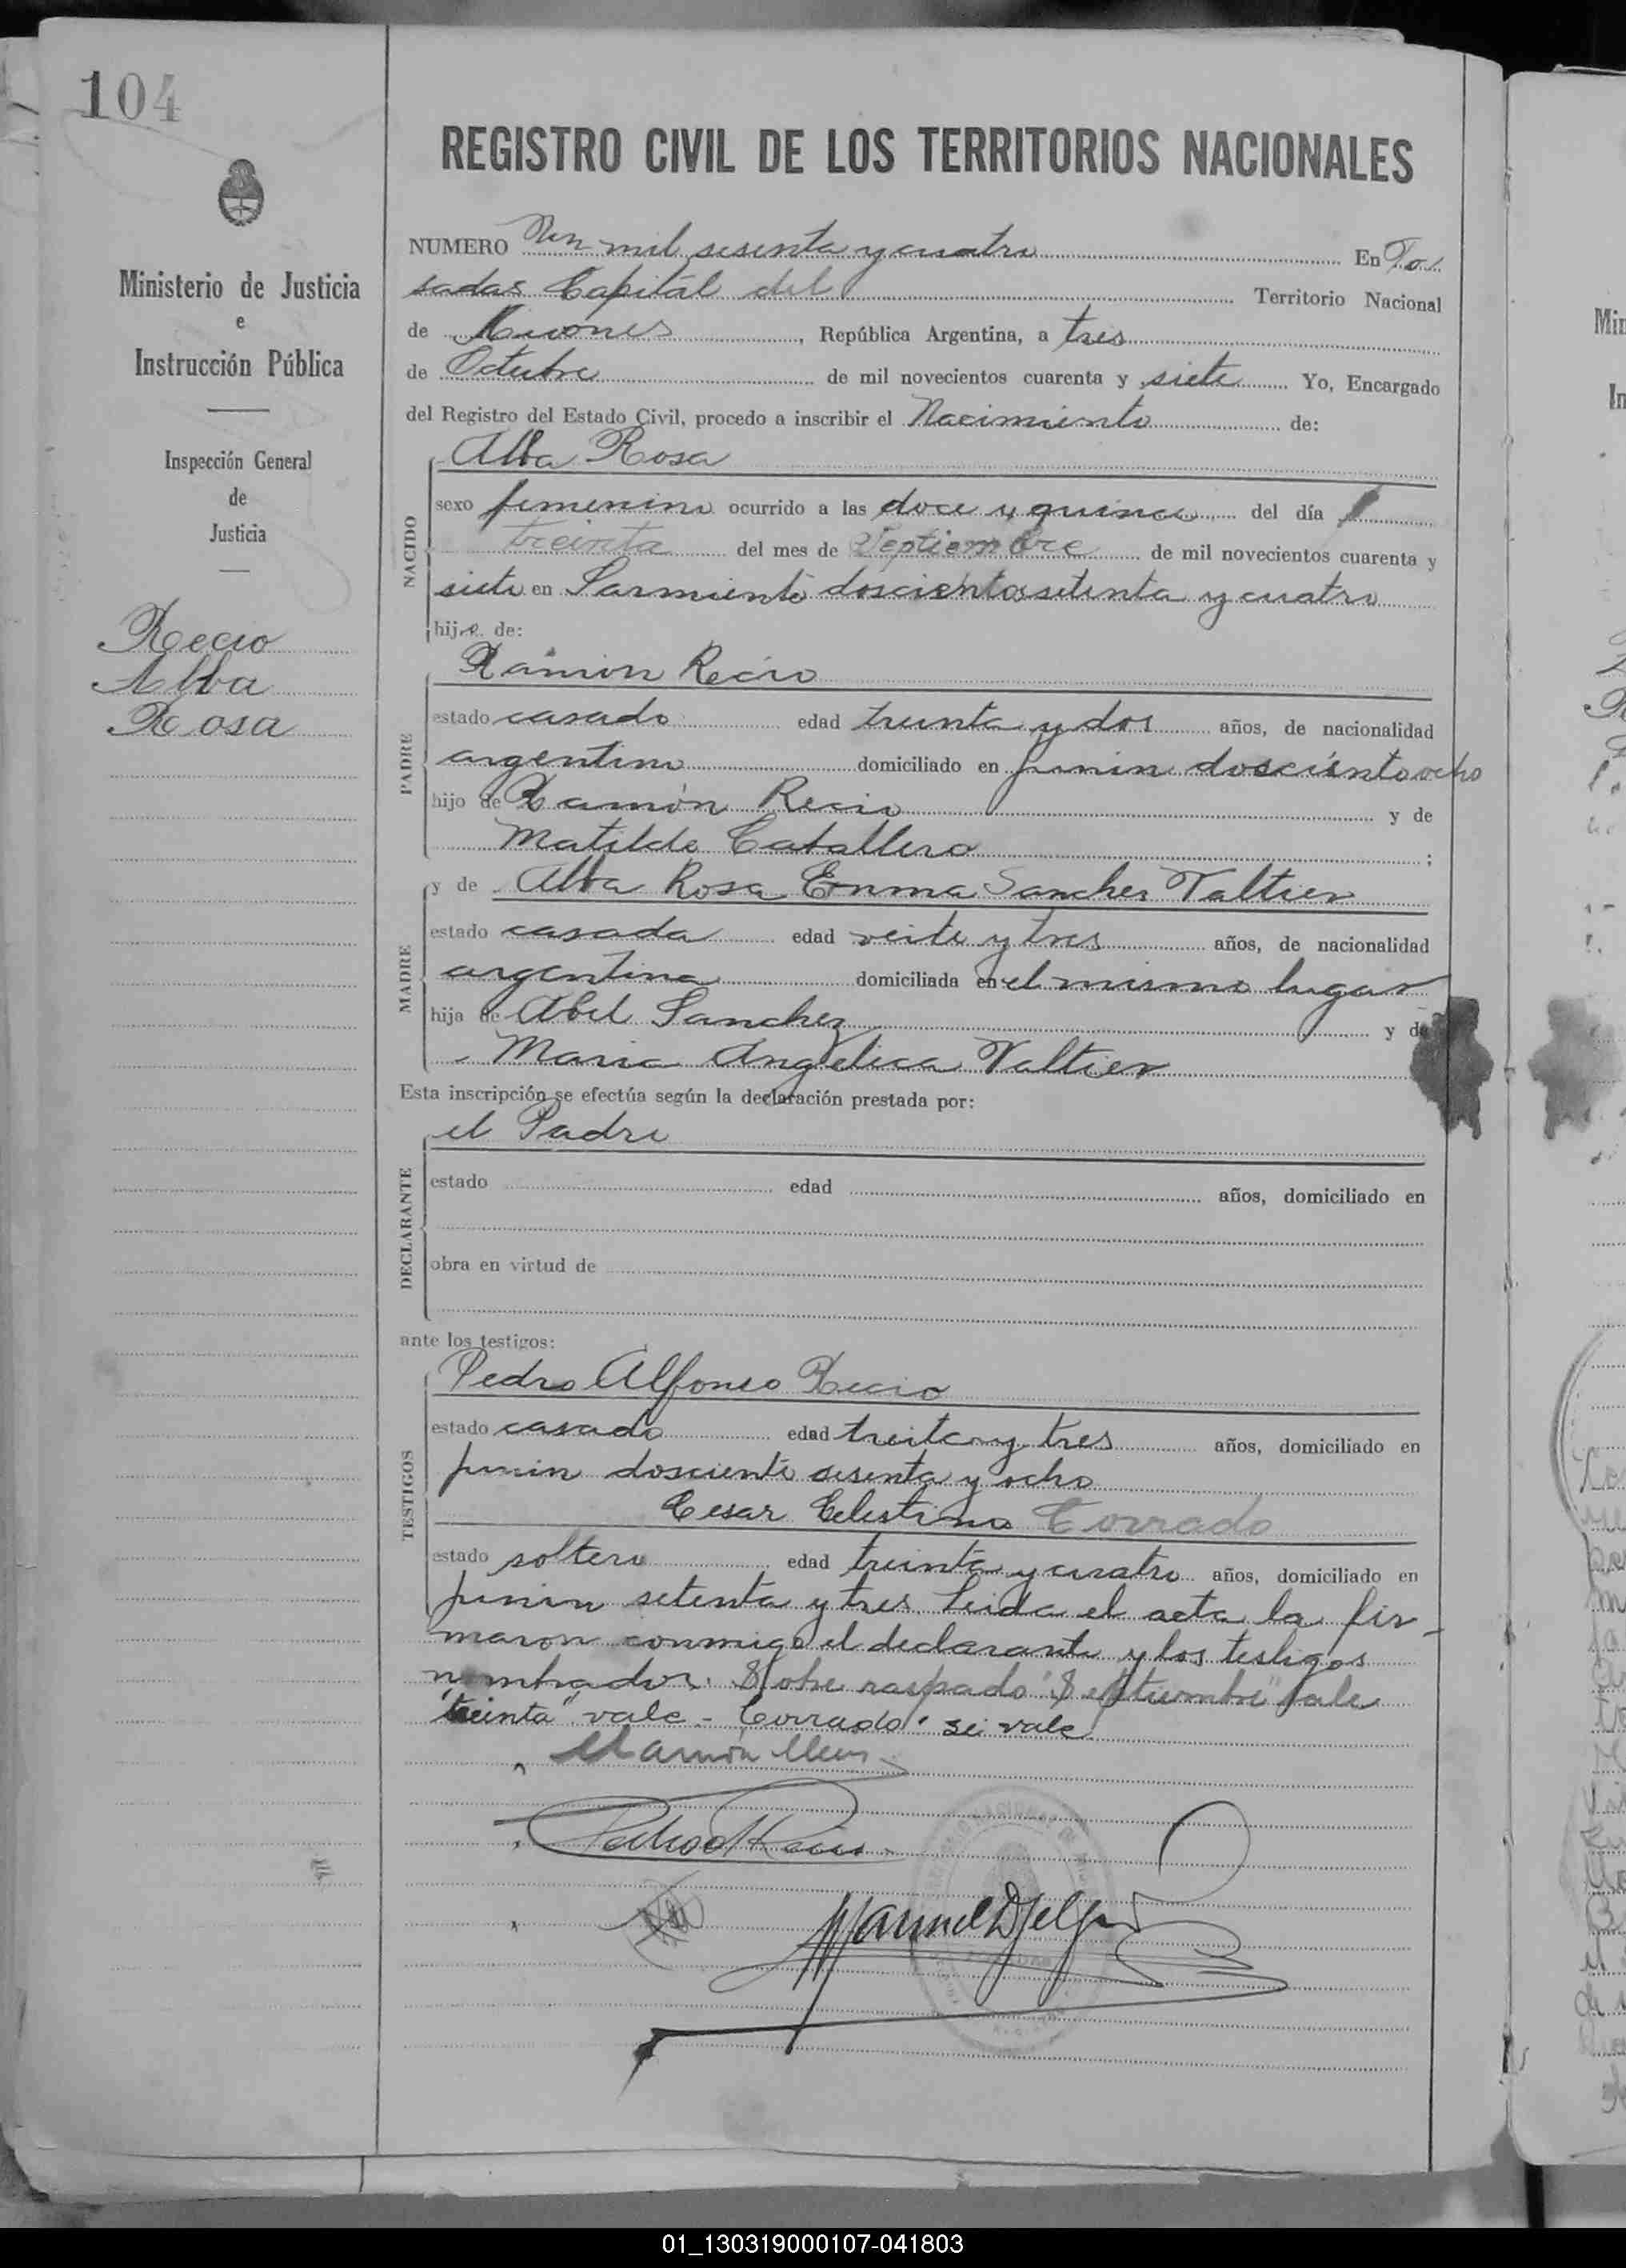 104
REGISTRO CIVIL DE LOS TERRITORIOS NACIONALES
Ministerio de Justicia
e
Instrucción Pública
Inspección General
de
Justicia
Recio
Alba
Rosa
NUMERO Un mil sesenta y cuatro En Po
sadas Capital del Territorio Nacional
de Misiones, República Argentina, a tres
de Octubre de mil novecientos cuarenta y siete Yo, Encargado
del Registro del Estado Civil, procedo a inscribir el Nacimiento de:
NACIDO
Alba Rosa
sexo femenino ocurrido a las doce y quince del día
treinta del mes de Septiembre de mil novecientos cuarenta y
siete en Sarmiento doscientos setenta y cuatro
hija de:
PADRE
Ramón Recio
estado casado edad treinta y dos años, de nacionalidad
argentino domiciliado en Junin doscientoocho
hijo de Ramón Recio y de
Matilde Caballero ;
MADRE
y de Alba Rosa Emma Sanchez Valtier
estado casada edad veite y tres años, de nacionalidad
argentina domiciliada en el mismo lugar
hija de Abel Sanchez y de
Maria Angelica Valtier
Esta inscripción se efectúa según la declaración prestada por:
DECLARANTE
el Padre
estado edad años, domiciliado en
obra en virtud de
ante los testigos:
TESTIGOS
Pedro Alfonso Recio
estado casado edad treitay tres años, domiciliado en
Junin dosciento sesenta y ocho
Cesar Celestino Corrado
estado soltero edad treinta y cuatro años, domiciliado en
Junin setenta y tres Leida el acta la fir-
maron conmigo el declarante y los testigos
nombrados. Sobre raspado "Septiembre" vale
"treinta" vale - Corrado. si vale
Ramón Recio
Pedro A Recio
01_130319000107-041803